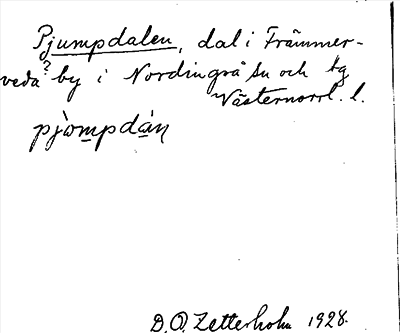 Pjumpdalen, dal i Främmer-
veda? by i Nordingrå sn och tg
Västernorrl. l.
pjòmpdán
D.O. Zetterholm 1928.